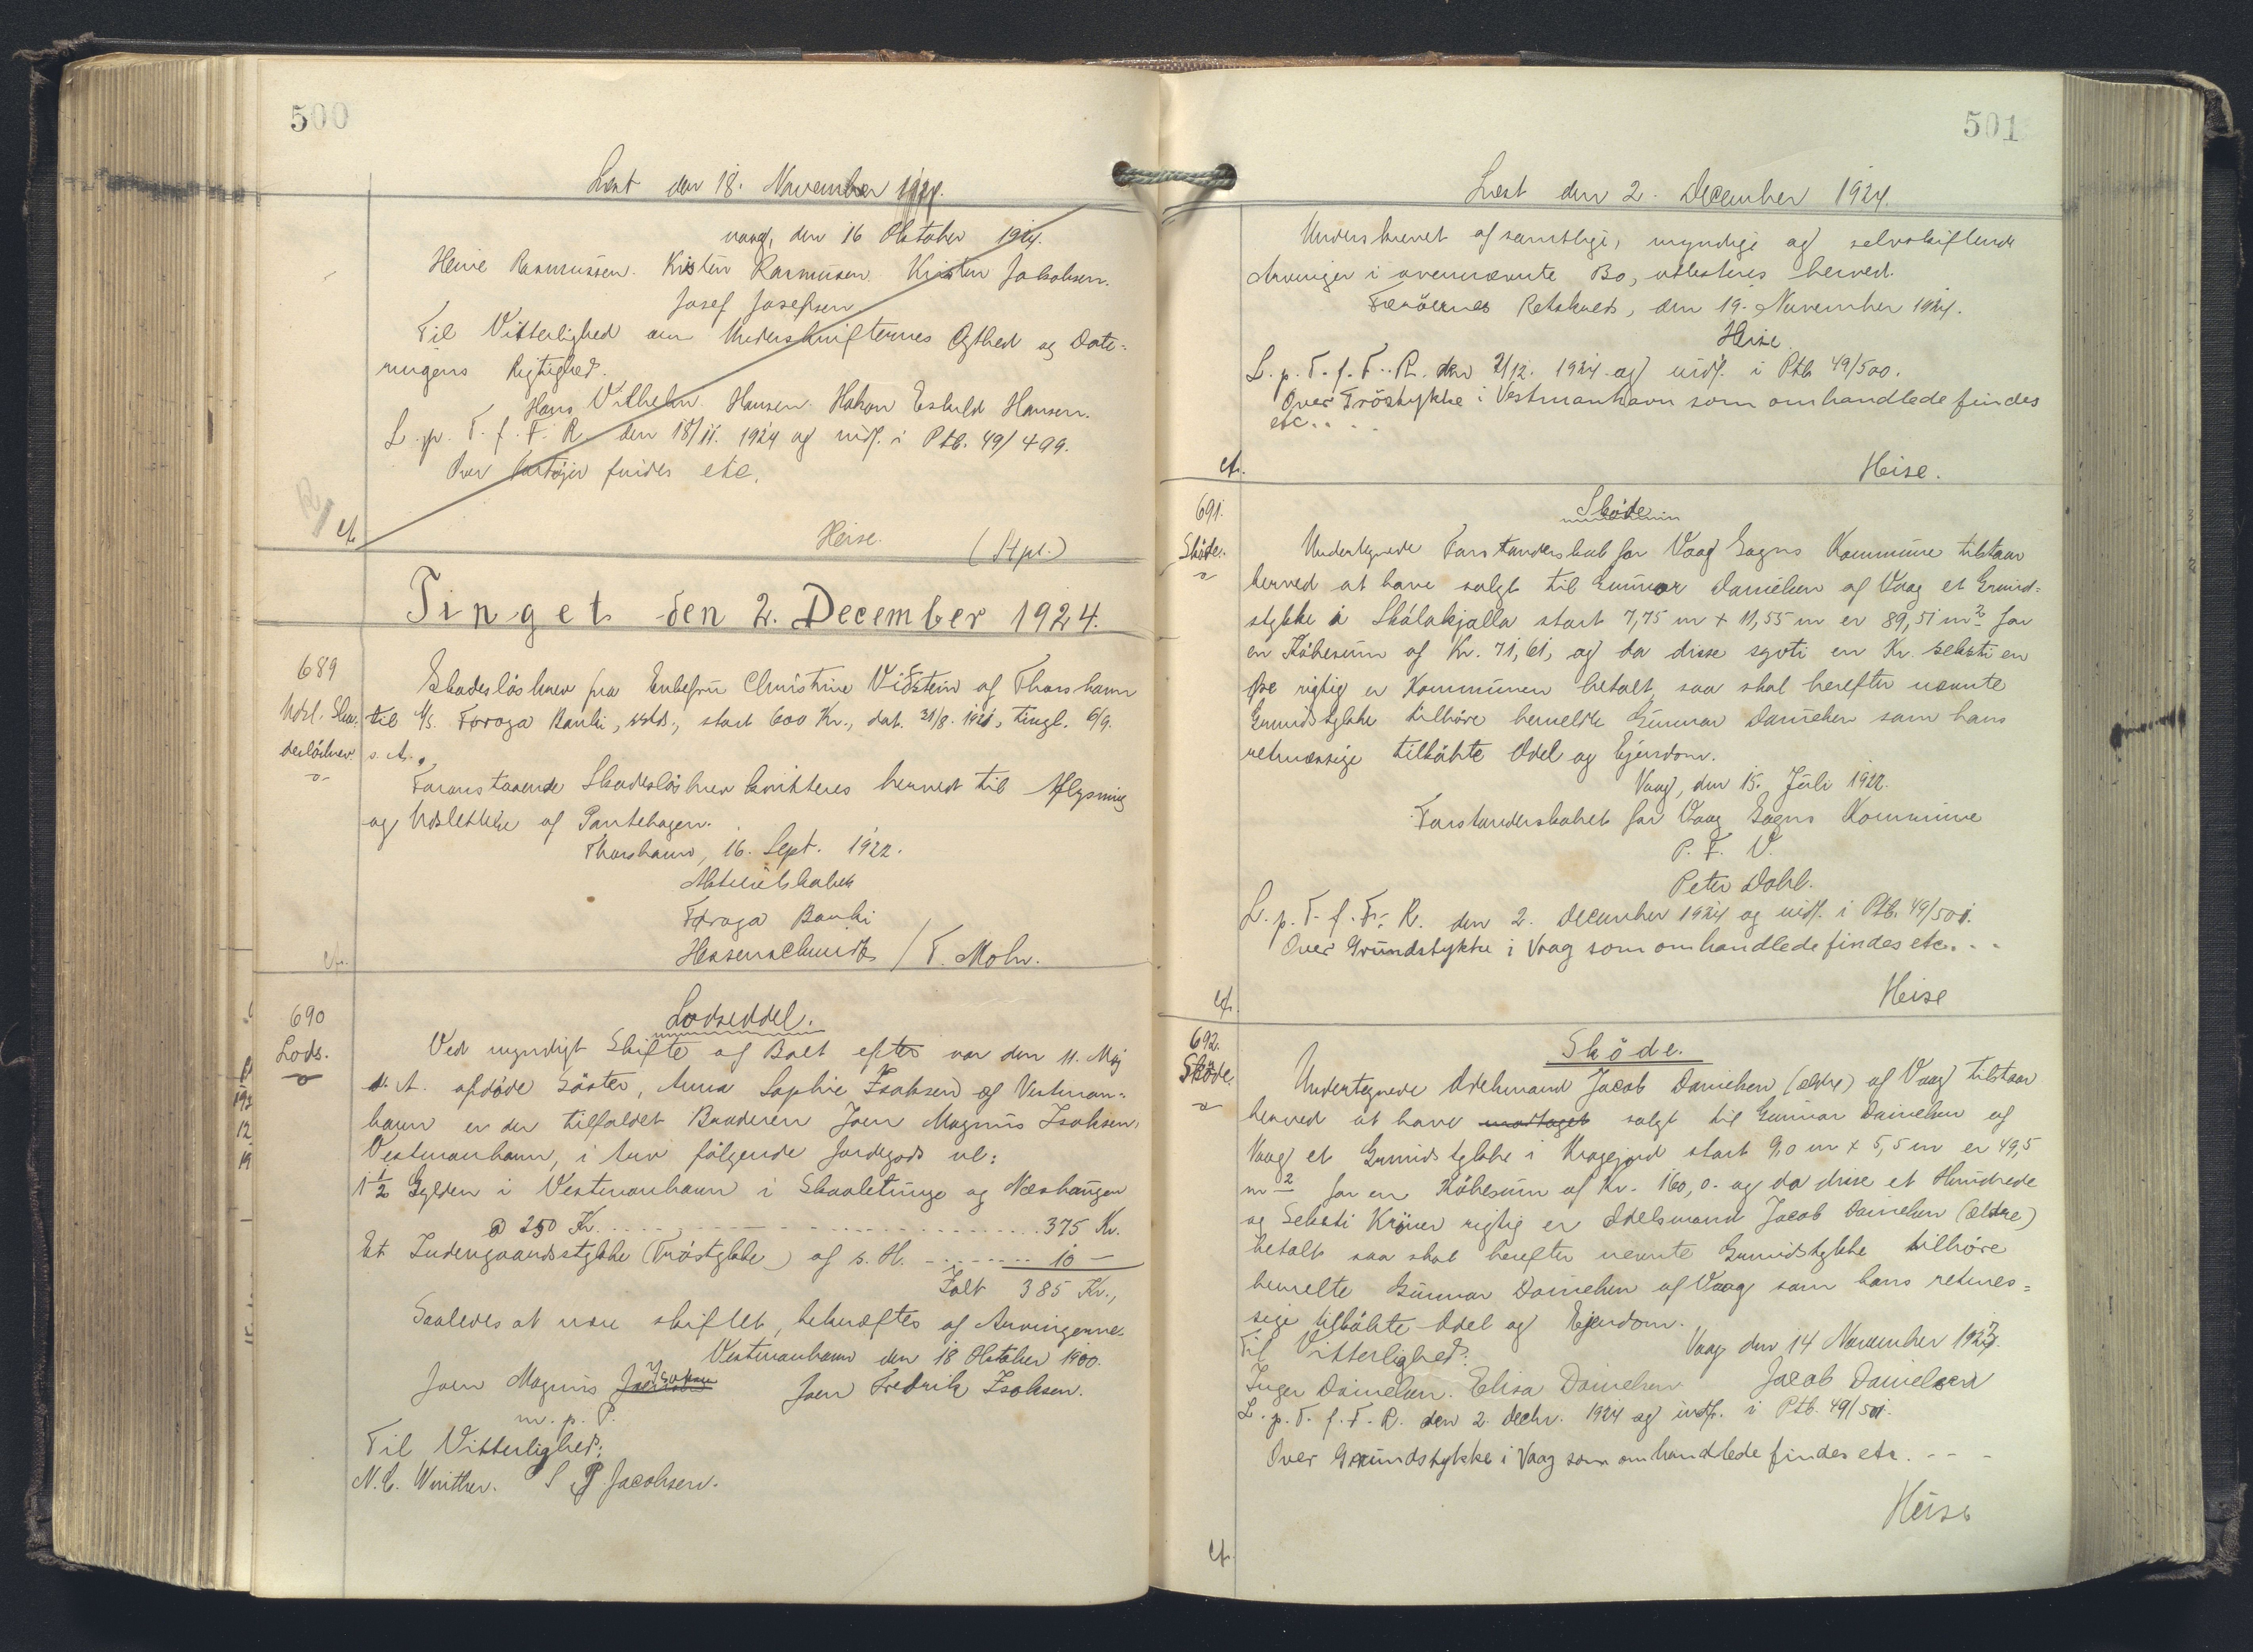 500
Læst den 18. November 1924.
Vaag, den 16 Oktober 1924.
Heine Rasmussen. Kristin Rasmussen. Kristin Jakobsen.
Josef Josefsen
Til Vitterlighed om Underskrifternes Ægthed og Date-
ringens Rigtighed.
Hans Vilhelm Hansen. Hakon Eskild Hansen.
L. p. T. f. F. R. den 18/11. 1924 og indf. i Ptb. 49/499.
Over Fartøjer findes etc.
cf.
Heise.
(Stpl.)
Tinget den 2. December 1924.
689
Udsl. Ska-
desløsbrev.
Skadesløsbrev fra Enkefru Christine Vidstein af Thorshavn
til A/S. Føroya Banki, sstds., stort 600 Kr., dat. 31/8. 1921, tingl. 6/9.
s. A.
Foranstaaende Skadesløsbrev kvitteres herved til Aflysning
og Udslettelse af Pantebogen.
Thorshavn, 16. Sept. 1922.
Aktieselskabet
Føroya Banki
Hessenschmidt / T. Mohr.
cfr.
690
Lods.
Lodseddel.
Ved myndigt Skifte af Boet efter vor den 11. Maj
d. A. afdøde Söster, Anna Sophie Isaksen af Vestman-
havn er der tilfaldet Broderen Joen Magnus Isaksen,
Vestmanhavn, i Arv følgende Jordegods nl:
1 1/2 Gylden i Vestmanhavn i Skaaletunge og Næshaugen
@ 250 Kr. . . . . . . . . . . . . . . . 375 Kr.
Et Indengaardsstykke (Tröstykke) af s. H. - . . . . . . . 10 -
Ialt 385 Kr.,
Saaledes at være skiftet, bekræftes af Arvingerne.
Vestmanhavn den 18 Oktober 1900.
Joen Magnus Isaksen Joen Fredrik Isaksen.
m. p. P.
Til Vitterlighed:
N. C. Winther. S P. Jacobsen.
501
Læst den 2. December 1924.
Underskrevet af samtlige, myndige og selvskiftende
Arvinger i ovennævnte Bo, attesteres herved.
Færöernes Retskreds, den 19. November 1924.
Heise.
L. p. T. f. F. R. den 2/12. 1924 og indf. i Ptb. 49/500.
Over Tröstykke i Vestmanhavn som omhandlede findes
etc. . . .
cf.
Heise.
691.
Sköde.
Sköde
Undertegnede Forstanderskab for Vaag Sogns Kommune tilstaar
herved at have solgt til Gunnar Danielsen af Vaag et Grund-
stykke á Skálakjalla stort 7,75 m x 11,55 m er 89,51 m2 for
en Köbesum af Kr. 71,61, og da disse syvti en Kr. seksti en
Øre rigtig er Kommunen betalt, saa skal herefter nævnte
Grundstykke tilhöre bemeldte Gunnar Danielsen som hans
retmæssige tilköbte Odel og Ejendom.
Vaag, den 15. Juli 1922.
Forstanderskabet for Vaag Sogns Kommune
P. F. V.
Peter Dahl.
L. p. T. f. F. R. den 2. december 1924 og indf. i Ptb. 49/501.
Over Grundstykke i Vaag som omhandlede findes etc. . .
cf.
Heise
692.
Sköde.
Sköde.
Undertegnede Odelsmand Jacob Danielsen (ældre) af Vaag tilstaar
herved at have modtaget solgt til Gunnar Danielsen af
Vaag et Grundstykke i Kragejord stort 9,0 m x 5,5 m er 49,5
m2 for en Köbesum af Kr. 160,0. og da disse et Hundrede
og Seksti Kroner rigtig er Odelsmand Jacob Danielsen (ældre)
betalt saa skal herefter nævnte Grundstykke tilhöre
bemelte Gunnar Danielsen af Vaag som hans retmes-
sige tilköbte Odel og Ejendom.
Til Vitterlighed: Vaag den 14 November 1923.
Inger Danielsen. Elisa Danielsen Jacob Danielsen
L. p. T. f. F. R. den 2. decbr. 1924 og indf. i Ptb. 49/501.
Over Grundstykke i Vaag som omhandlede findes etc. - - -
Heise
cf.